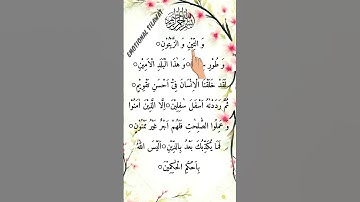 بِسْمِ اللهِ الرَّحْمٰنِ الرَّحِيْمِ
EMOTIONAL TILAWAT
وَ التِّيْنِ وَ الزَّيْتُوْنِ
وَ طُوْرِ وَ هٰذَا الْبَلَدِ الْاَمِيْنِ
لَقَدْ خَلَقْنَا الْاِنْسَانَ فِيْۤ اَحْسَنِ تَقْوِيْمٍ
ثُمَّ رَدَدْنٰهُ اَسْفَلَ سٰفِلِيْنَ اِلَّا الَّذِيْنَ اٰمَنُوْا
وَ عَمِلُوا الصّٰلِحٰتِ فَلَهُمْ اَجْرٌ غَيْرُ مَمْنُوْنٍ
فَمَا يُكَذِّبُكَ بَعْدُ بِالدِّيْنِ اَلَيْسَ اللّٰهُ
بِاَحْكَمِ الْحٰكِمِيْنَ